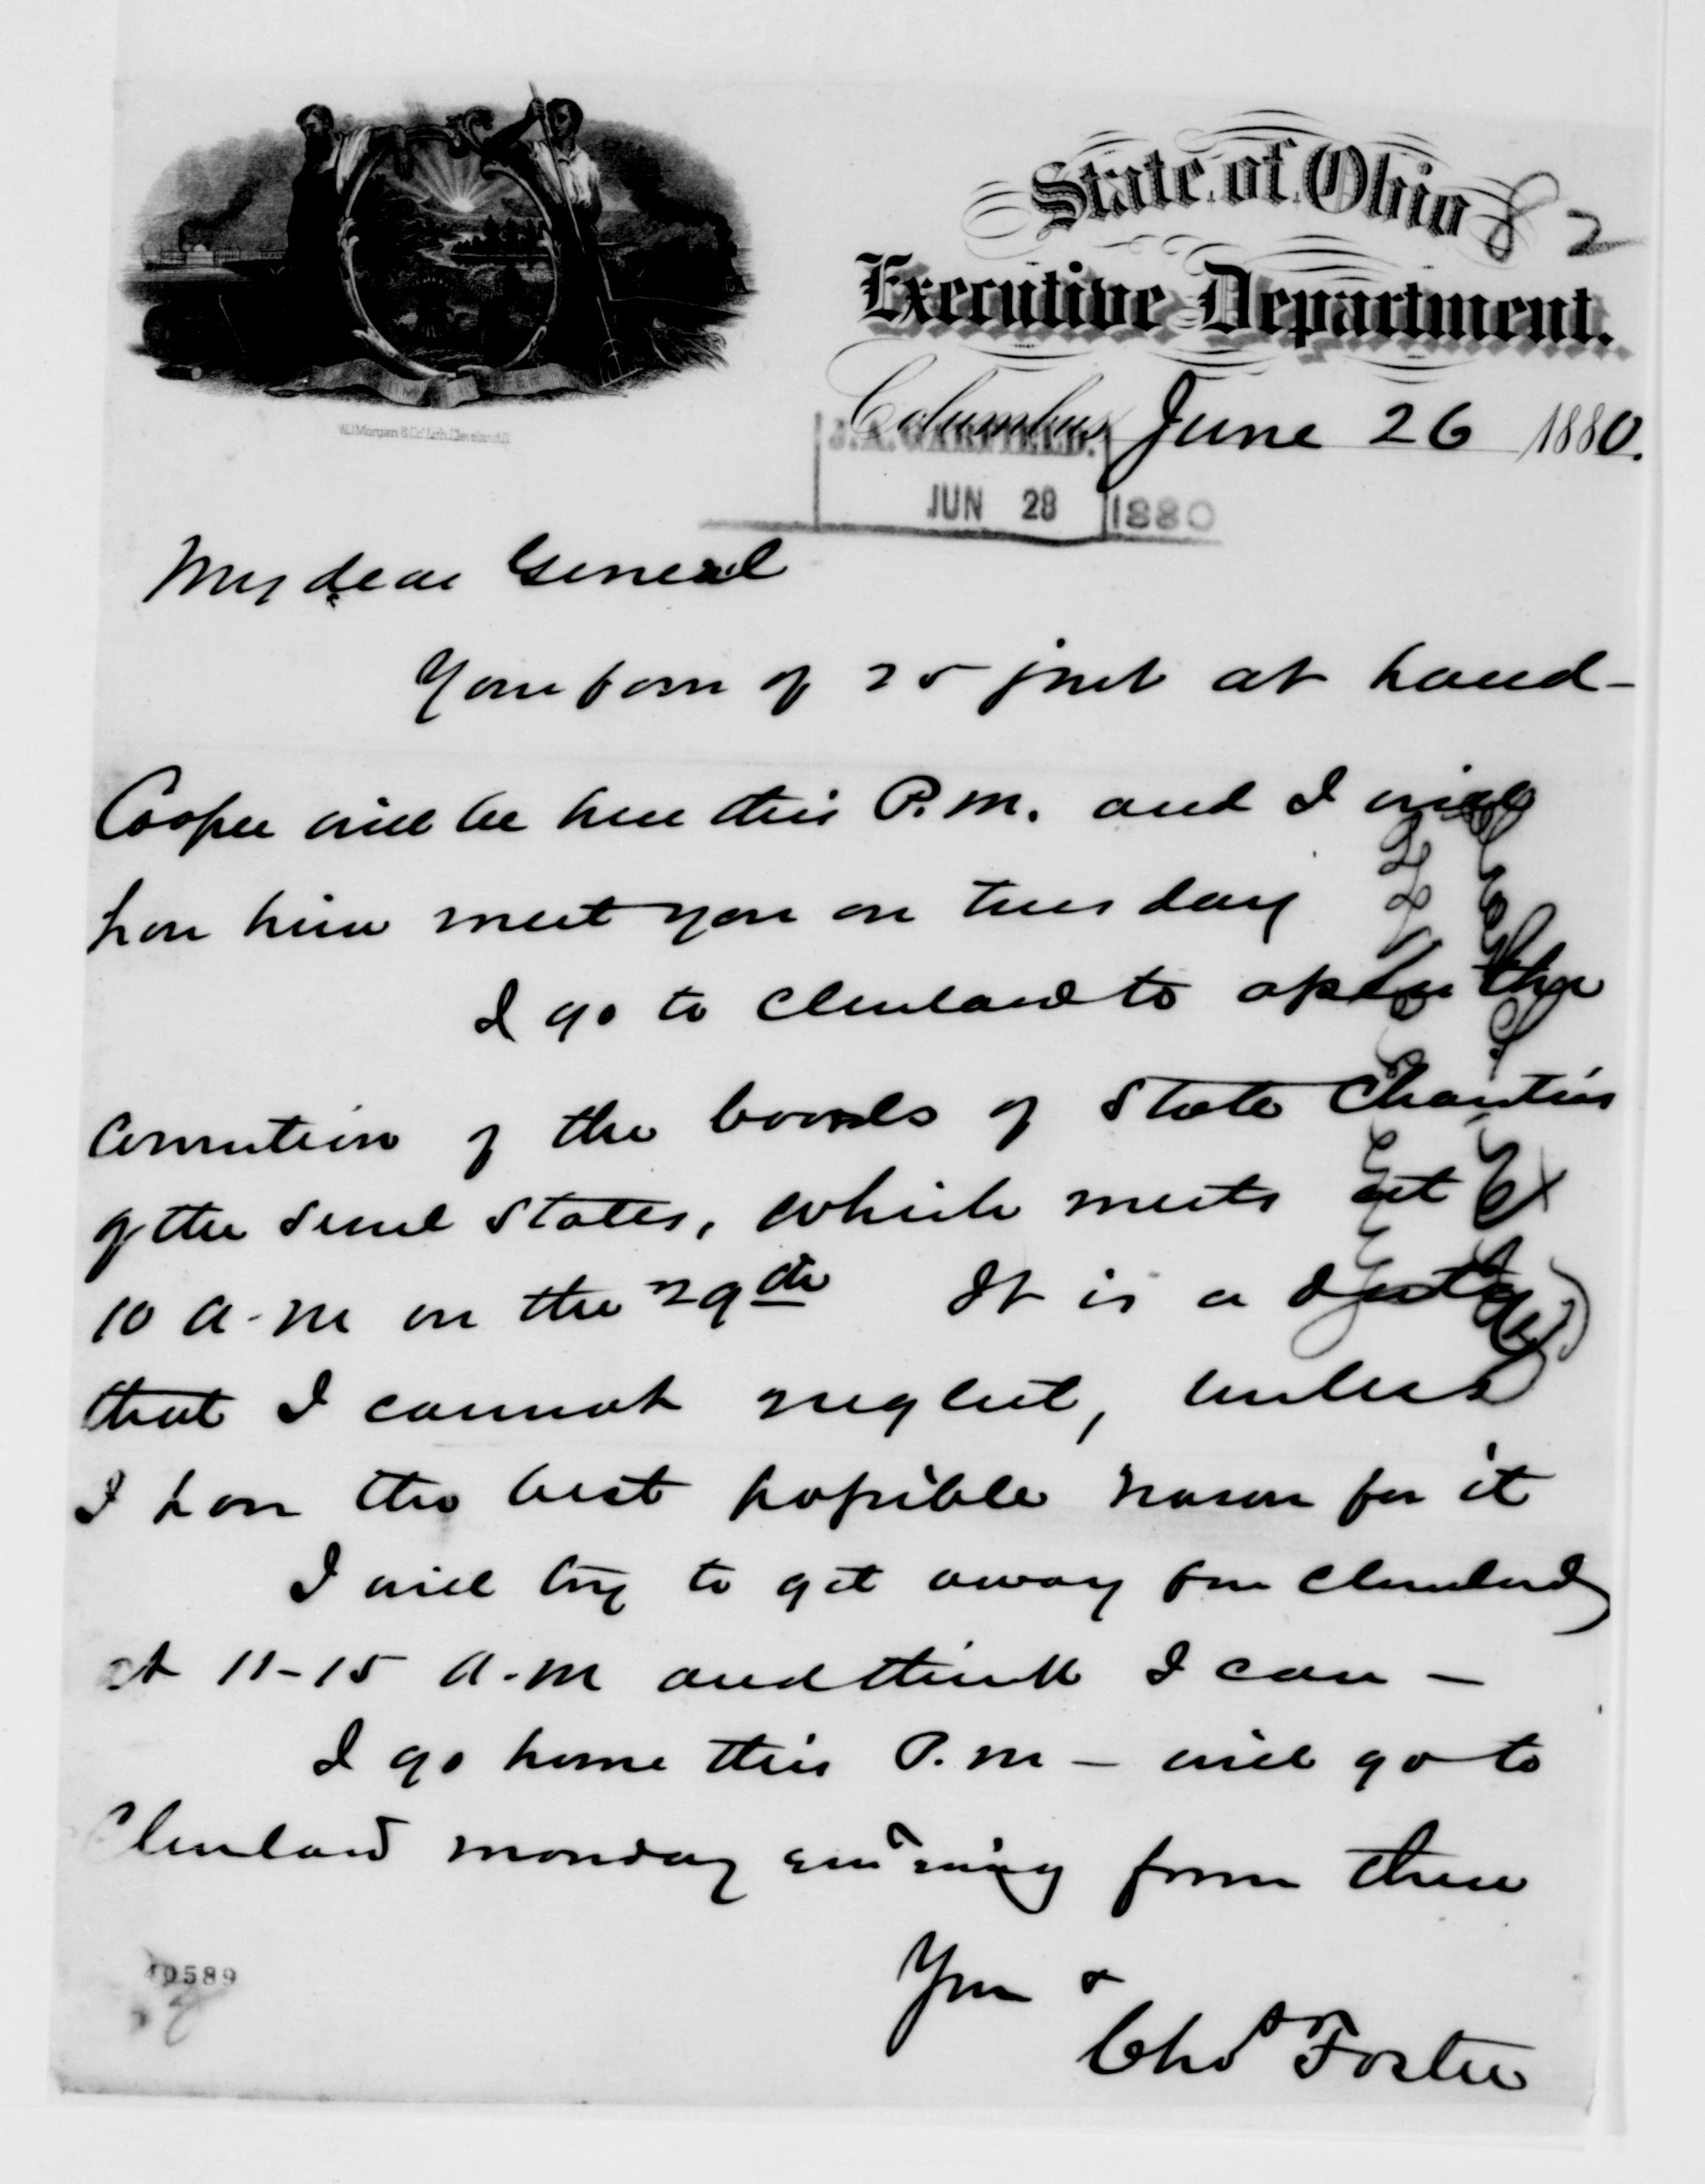 State of Ohio 82
Executive Department.
Columbus, June 26 1880.
J. A. GARFIELD.
JUN 28 1880
W.J. Morgan & Co. Lith. Cleveland, O.
My dear General
Your favor of 25 just at hand -
Cooper will be here this P.M. and I will
have him meet you on Tuesday
I go to Cleveland to open the
Convention of the boards of State Charities
of the several States, which meets at
10 A.M on the 29th It is a duty
that I cannot neglect, unless
I have the best possible reason for it
I will try to get away from Cleveland
at 11-15 A.M and think I can -
I go home this P.M - will go to
Cleveland monday evening from there
Yours &
Chas Foster
10589